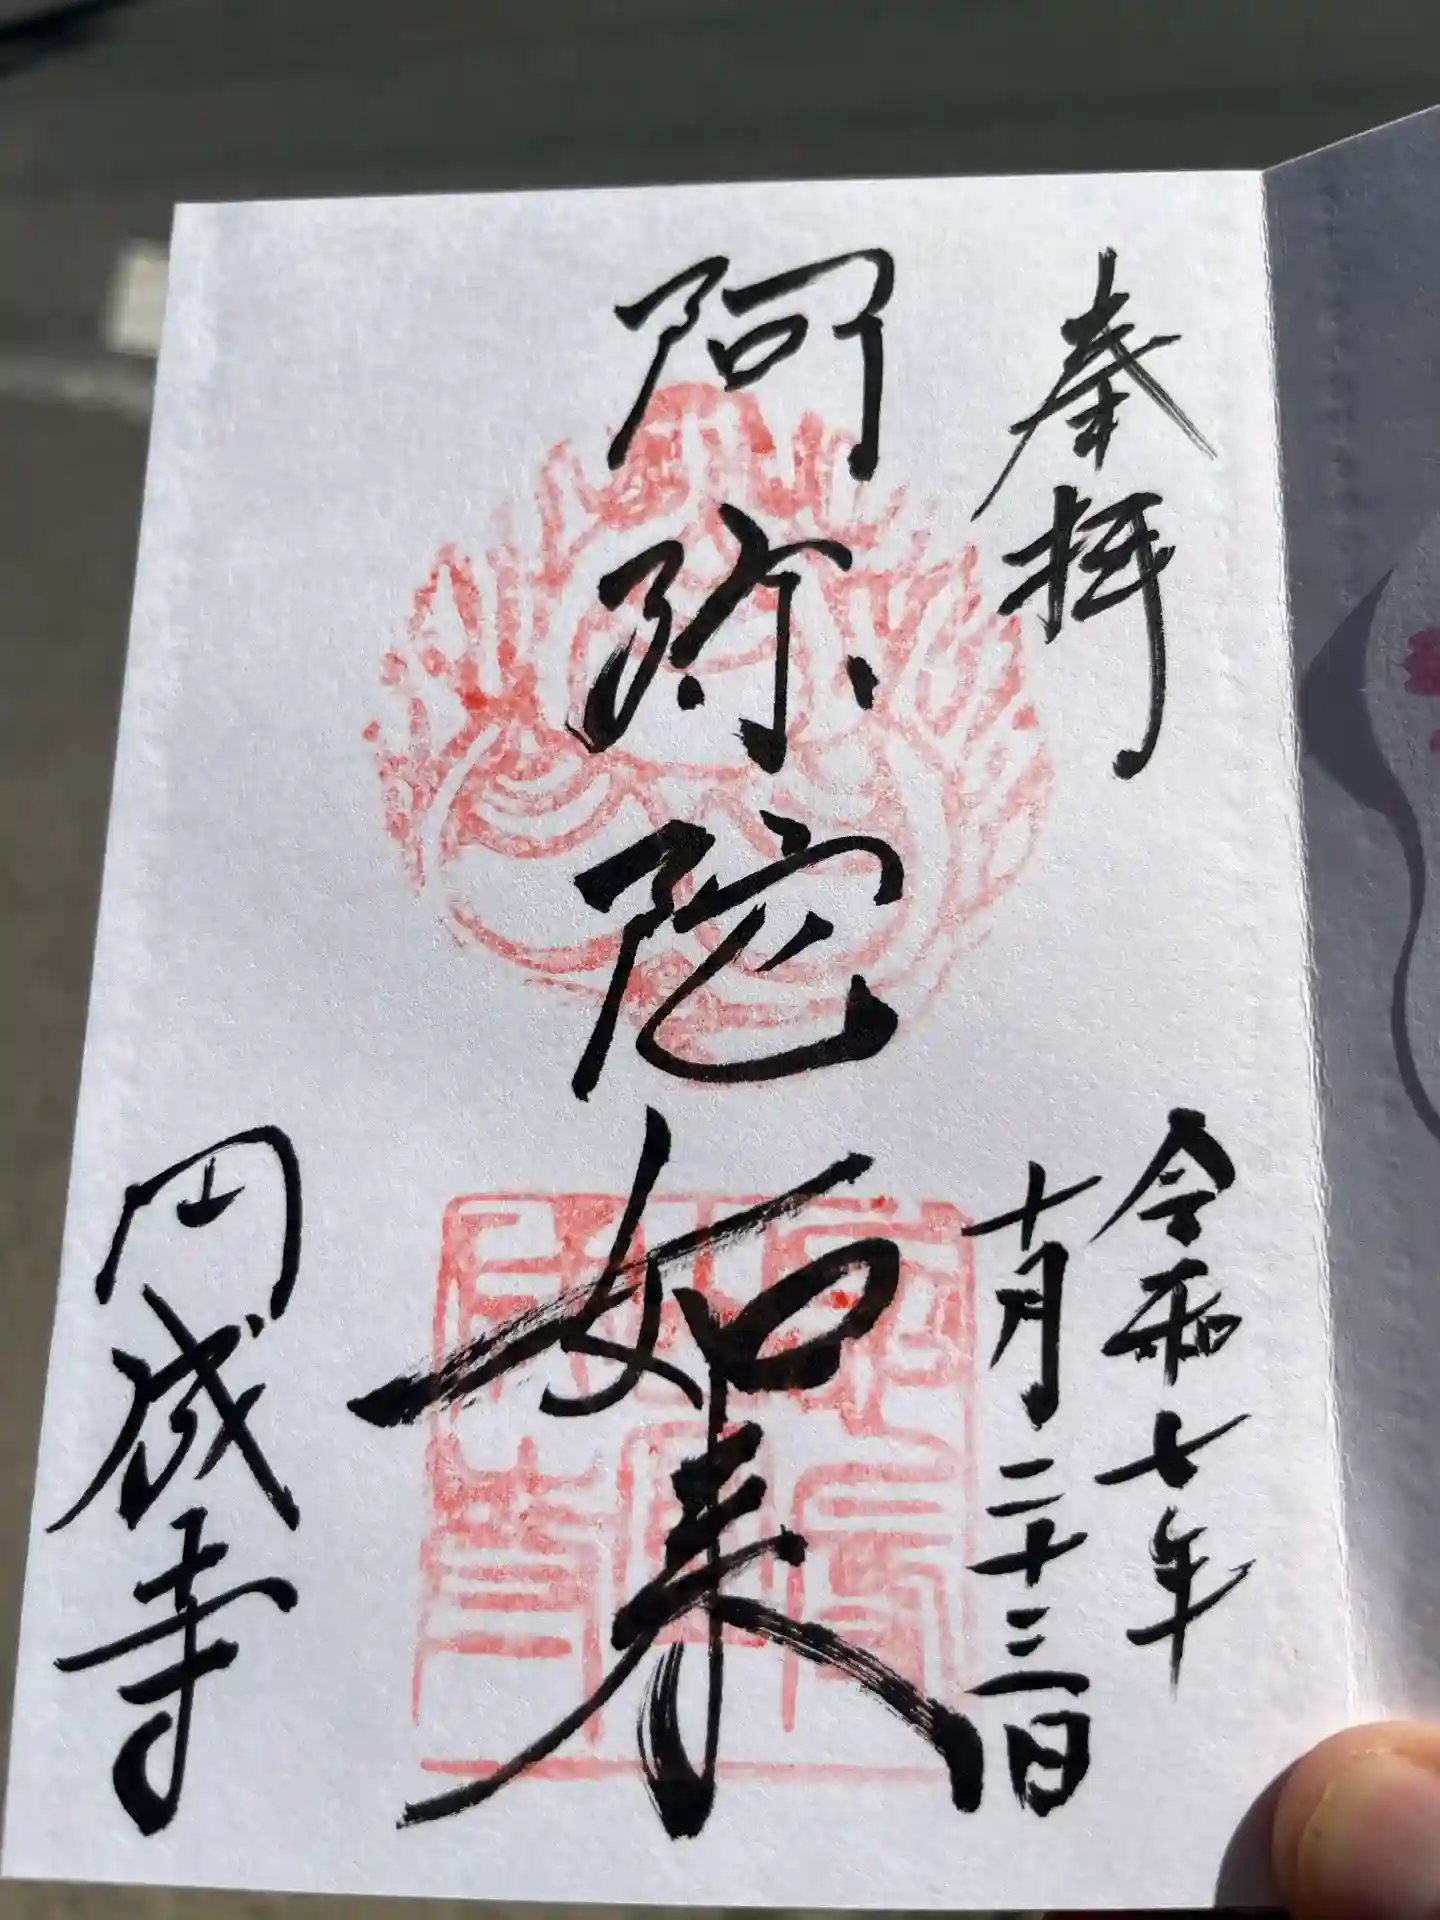 奉拝
令和七年
十月二十三日
阿弥陀如来
円成寺